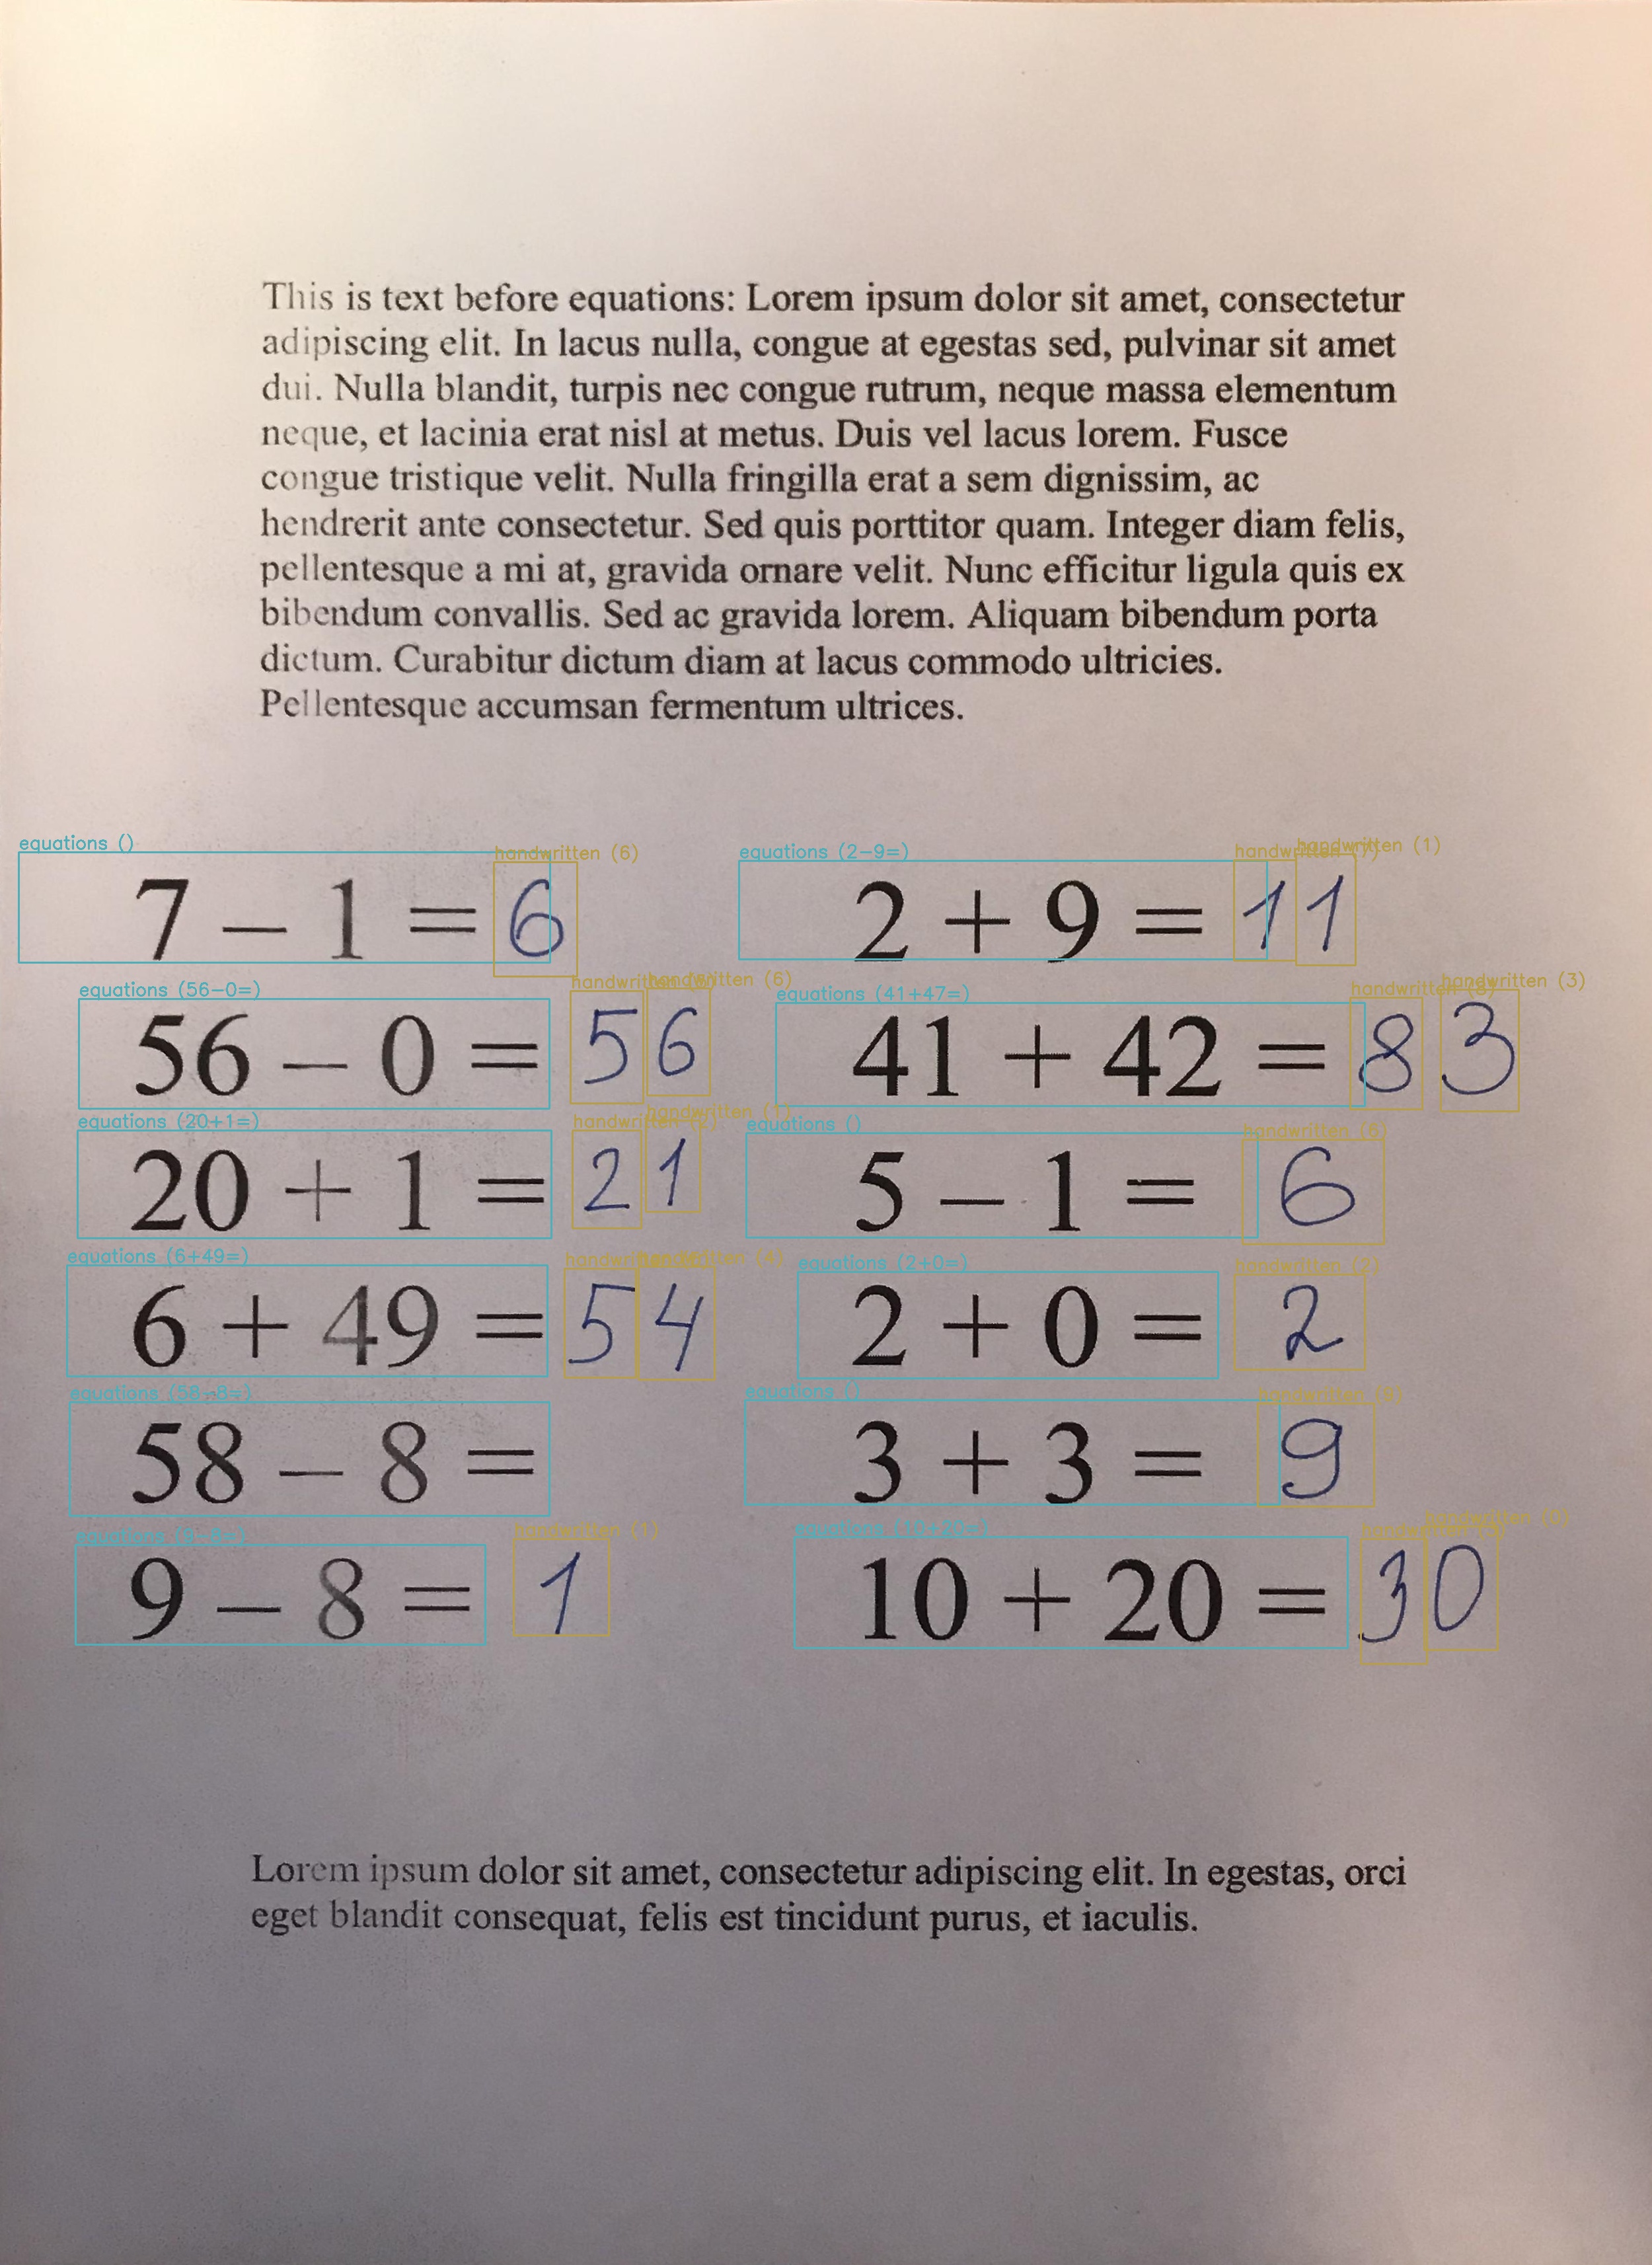 This is text before equations: Lorem ipsum dolor sit amet, consectetur
adipiscing elit. In lacus nulla, congue at egestas sed, pulvinar sit amet
dui. Nulla blandit, turpis nec congue rutrum, neque massa elementum
neque, et lacinia erat nisl at metus. Duis vel lacus lorem. Fusce
congue tristique velit. Nulla fringilla erat a sem dignissim, ac
hendrerit ante consectetur. Sed quis porttitor quam. Integer diam felis,
pellentesque a mi at, gravida ornare velit. Nunc efficitur ligula quis ex
bibendum convallis. Sed ac gravida lorem. Aliquam bibendum porta
dictum. Curabitur dictum diam at lacus commodo ultricies.
Pellentesque accumsan fermentum ultrices.
equations () handwritten (6) equations (2-9=) handwritten (1)
7 – 1 = 6 2 + 9 = 11
equations (56-0=) handwritten (6) equations (41+47=) handwritten (3)
56 – 0 = 56 41 + 42 = 83
equations (20+1=) handwritten (1) equations () handwritten (6)
20 + 1 = 21 5 – 1 = 6
equations (6+49=) handwritten (4) equations (2+0=) handwritten (2)
6 + 49 = 54 2 + 0 = 2
equations (58-8=) equations () handwritten (9)
58 – 8 = 3 + 3 = 9
equations (9-8=) handwritten (1) equations (10+20=) handwritten (0)
9 – 8 = 1 10 + 20 = 30
Lorem ipsum dolor sit amet, consectetur adipiscing elit. In egestas, orci
eget blandit consequat, felis est tincidunt purus, et iaculis.